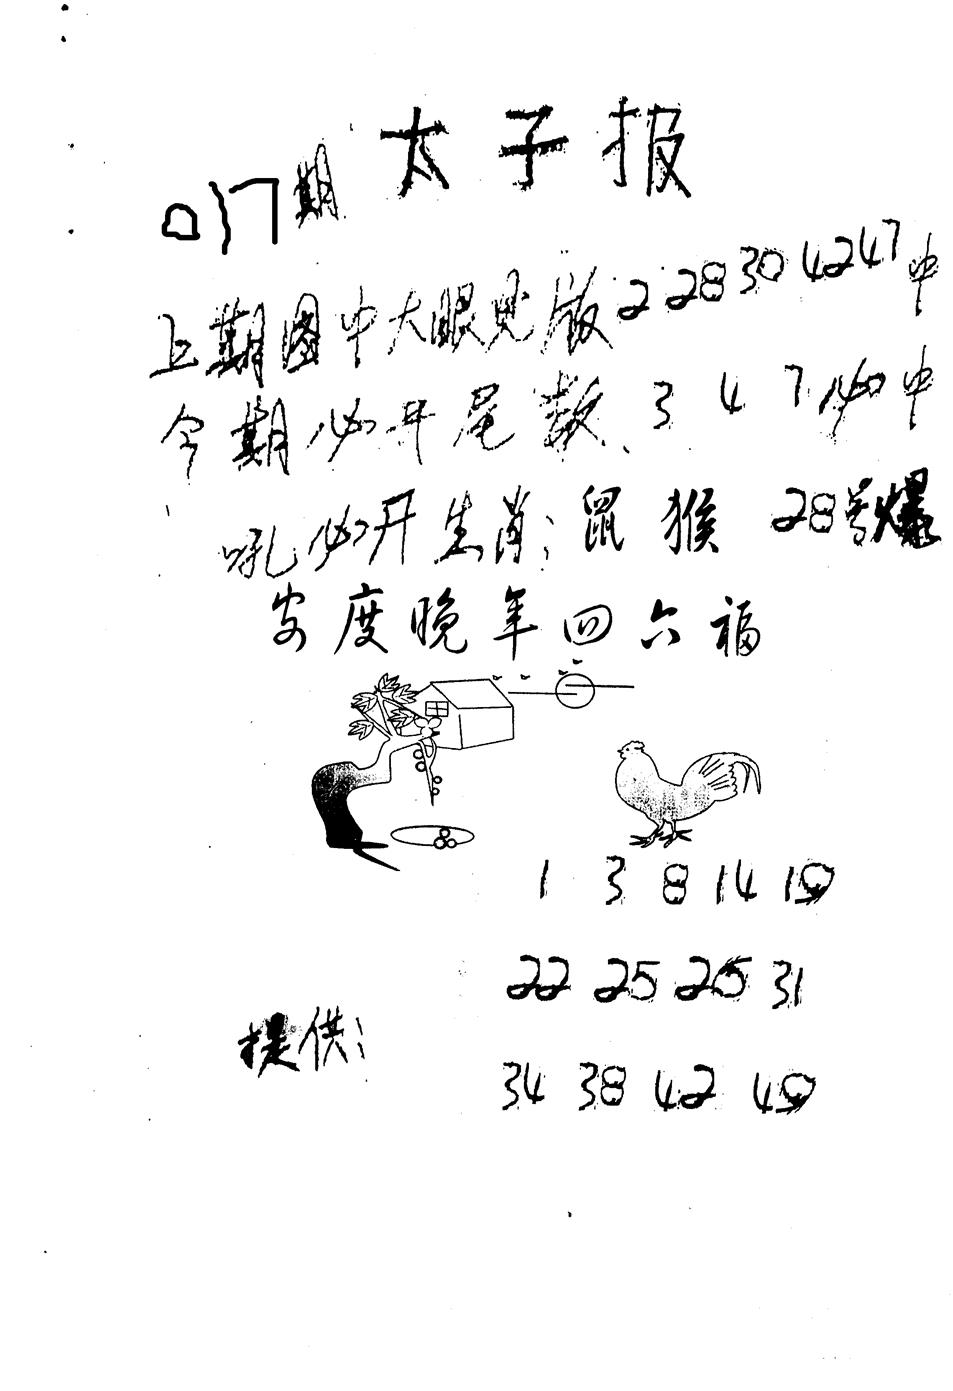 太子报
017期
上期图中大眼见版2 28 30 42 47中
今期必开尾数、3 4 7必中
吼必开生肖：鼠 猴 28号爆
安度晚年四六福
1 3 8 14 19
22 25 26 31
提供：
34 38 42 49